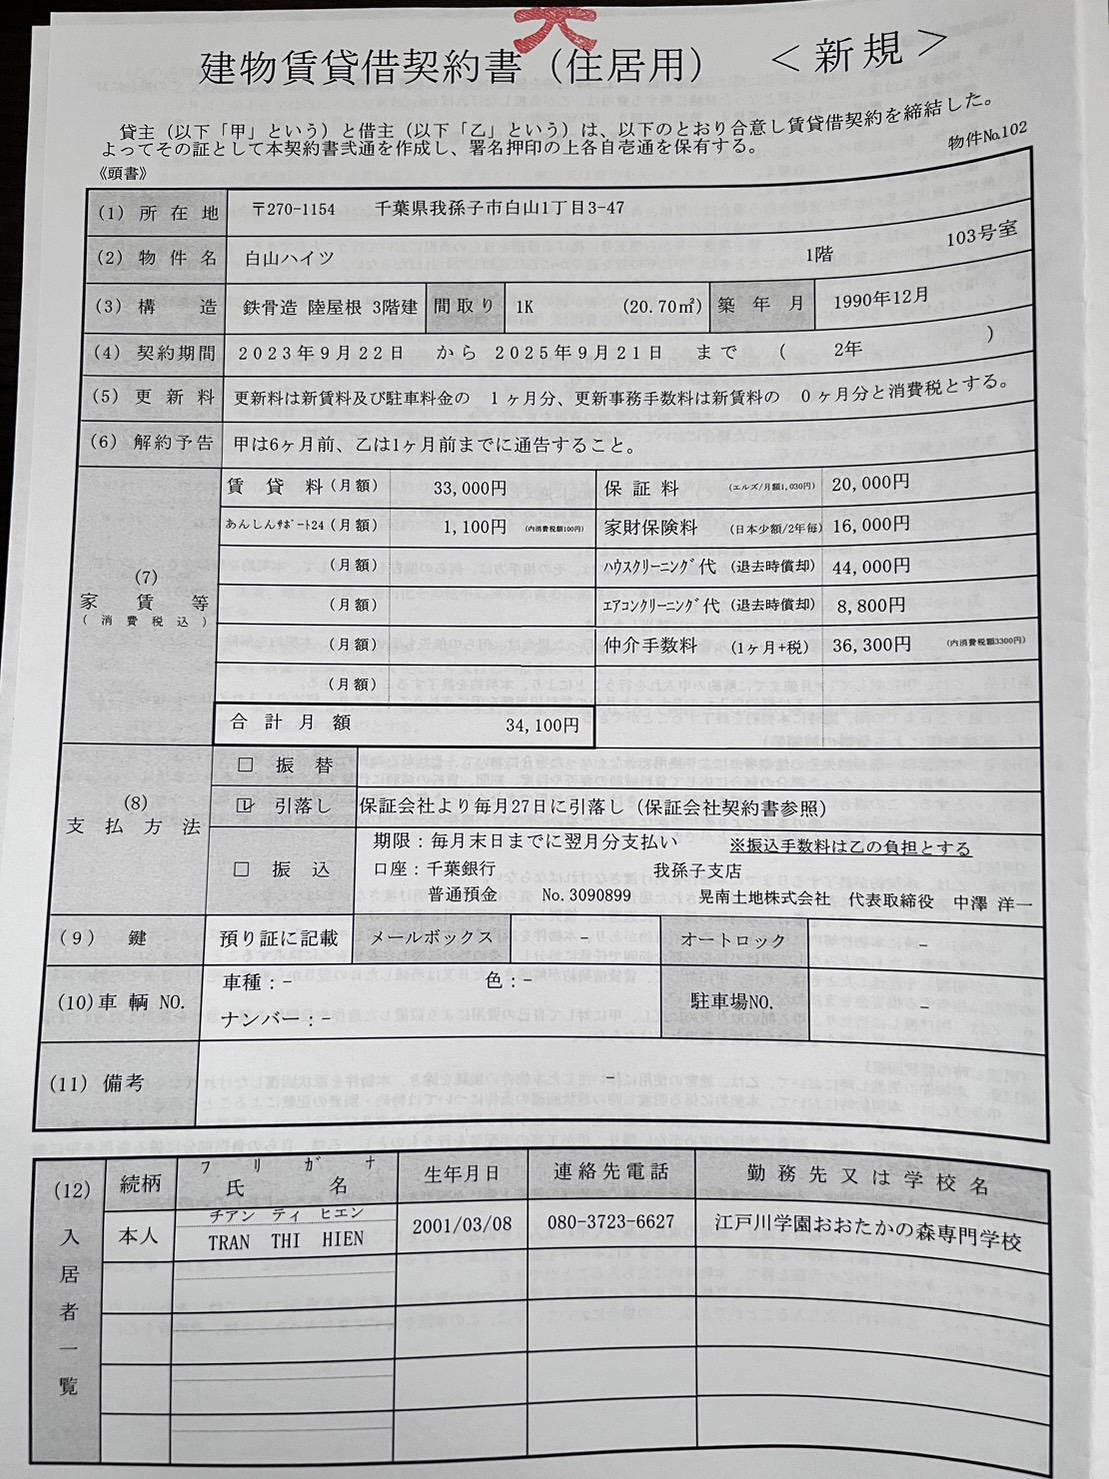 建物賃貸借契約書（住居用） ＜新規＞
貸主（以下「甲」という）と借主（以下「乙」という）は、以下のとおり合意し賃貸借契約を締結した。
よってその証として本契約書弐通を作成し、署名押印の上各自壱通を保有する。
物件No.102
《頭書》
(1) 所在地 〒270-1154 千葉県我孫子市白山1丁目3-47
(2) 物件名 白山ハイツ 1階 103号室
(3) 構造 鉄骨造 陸屋根 3階建 間取り 1K (20.70㎡) 築年月 1990年12月
(4) 契約期間 2023年9月22日 から 2025年9月21日 まで ( 2年 )
(5) 更新料 更新料は新賃料及び駐車料金の 1ヶ月分、更新事務手数料は新賃料の 0ヶ月分と消費税とする。
(6) 解約予告 甲は6ヶ月前、乙は1ヶ月前までに通告すること。
(7) 家賃等 (消費税込)
賃貸料(月額) 33,000円 保証料 (エルズ/月額1,030円) 20,000円
あんしんｻﾎﾟｰﾄ24(月額) 1,100円 (内消費税額100円) 家財保険料 (日本少額/2年毎) 16,000円
(月額) ﾊｳｽｸﾘｰﾆﾝｸﾞ代 (退去時償却) 44,000円
(月額) ｴｱｺﾝｸﾘｰﾆﾝｸﾞ代 (退去時償却) 8,800円
(月額) 仲介手数料 (1ヶ月+税) 36,300円 (内消費税額3300円)
(月額)
合計月額 34,100円
(8) 支払方法
□ 振替
☑ 引落し 保証会社より毎月27日に引落し（保証会社契約書参照）
□ 振込 期限：毎月末日までに翌月分支払い ※振込手数料は乙の負担とする
口座：千葉銀行 我孫子支店
普通預金 No.3090899 晃南土地株式会社 代表取締役 中澤 洋一
(9) 鍵 預り証に記載 メールボックス - オートロック -
(10)車輌NO. 車種：- 色：- 駐車場NO. -
ナンバー：-
(11) 備考 -
(12) 入居者一覧
続柄 フリガナ 氏名 生年月日 連絡先電話 勤務先又は学校名
本人 チアン ティ ヒエン
TRAN THI HIEN 2001/03/08 080-3723-6627 江戸川学園おおたかの森専門学校